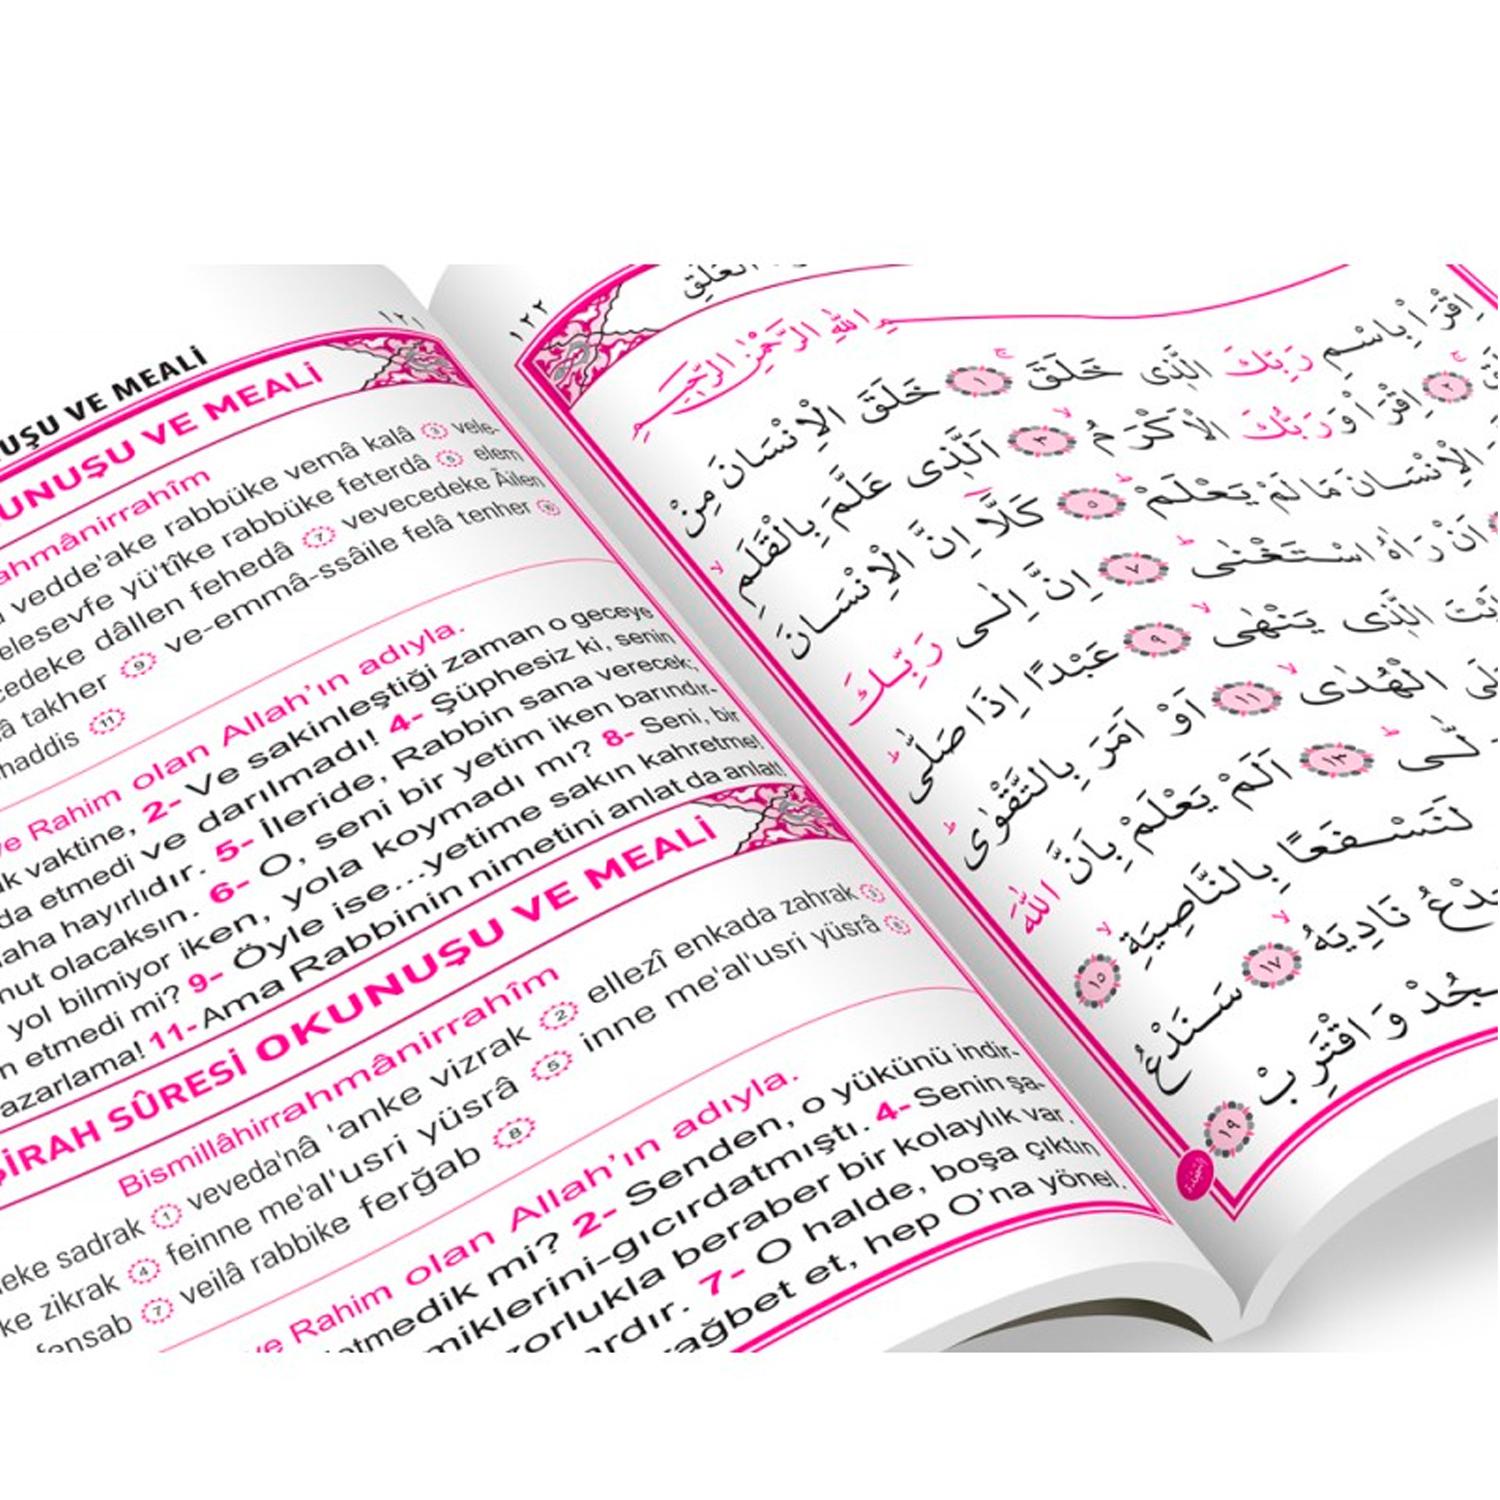 ١٢١
UŞU VE MEALİ
UNUŞU VE MEALİ
ahmânirrahîm
vedde'ake rabbüke vemâ kalâ 3 vele-
elesevfe yü'tîke rabbüke feterdâ 5 elem
cedeke dâllen fehedâ 7 vevecedeke Âilen
lâ takher 9 ve-emmâ-ssâile felâ tenher 10
haddis 11
ve Rahim olan Allah'ın adıyla.
k vaktine, 2- Ve sakinleştiği zaman o geceye
da etmedi ve darılmadı! 4- Şüphesiz ki, senin
aha hayırlıdır. 5- İleride, Rabbin sana verecek;
nut olacaksın. 6- O, seni bir yetim iken barındır-
yol bilmiyor iken, yola koymadı mı? 8- Seni, bir
n etmedi mi? 9- Öyle ise...yetime sakın kahretme!
azarlama! 11- Ama Rabbinin nimetini anlat da anlat!
ŞİRAH SÛRESİ OKUNUŞU VE MEALİ
Bismillâhirrahmânirrahîm
leke sadrak 1 veveda'nâ 'anke vizrak 2 ellezî enkada zahrak 3
ke zikrak 4 feinne me'al'usri yüsrâ 5 inne me'al'usri yüsrâ 6
fensab 7 veilâ rabbike ferğab 8
ve Rahim olan Allah'ın adıyla.
etmedik mi? 2- Senden, o yükünü indir-
miklerini-gıcırdatmıştı. 4- Senin şa-
zorlukla beraber bir kolaylık var.
ardır. 7- O halde, boşa çıktın
rağbet et, hep O'na yönel.
١٢٢
الْعَلَقِ
اللّٰهِ الرَّحْمٰنِ الرَّحِيمِ
اِقْرَأْ بِاسْمِ رَبِّكَ الَّذِى خَلَقَ ١ خَلَقَ الْاِنْسَانَ مِنْ
٢ اِقْرَأْ وَرَبُّكَ الْاَكْرَمُ ٣ اَلَّذِى عَلَّمَ بِالْقَلَمِ
الْاِنْسَانَ مَا لَمْ يَعْلَمْ ٥ كَلَّا اِنَّ الْاِنْسَانَ
اَنْ رَاٰهُ اسْتَغْنٰى ٧ اِنَّ اِلٰى رَبِّكَ
الَّذِى يَنْهٰى ٩ عَبْدًا اِذَا صَلّٰى
الْهُدٰى ١١ اَوْ اَمَرَ بِالتَّقْوٰى
١٣ اَلَمْ يَعْلَمْ بِاَنَّ اللّٰهَ
لَنَسْفَعًا بِالنَّاصِيَةِ ١٥
نَادِيَهُ ١٧ سَنَدْعُ
وَاقْتَرِبْ ١٩